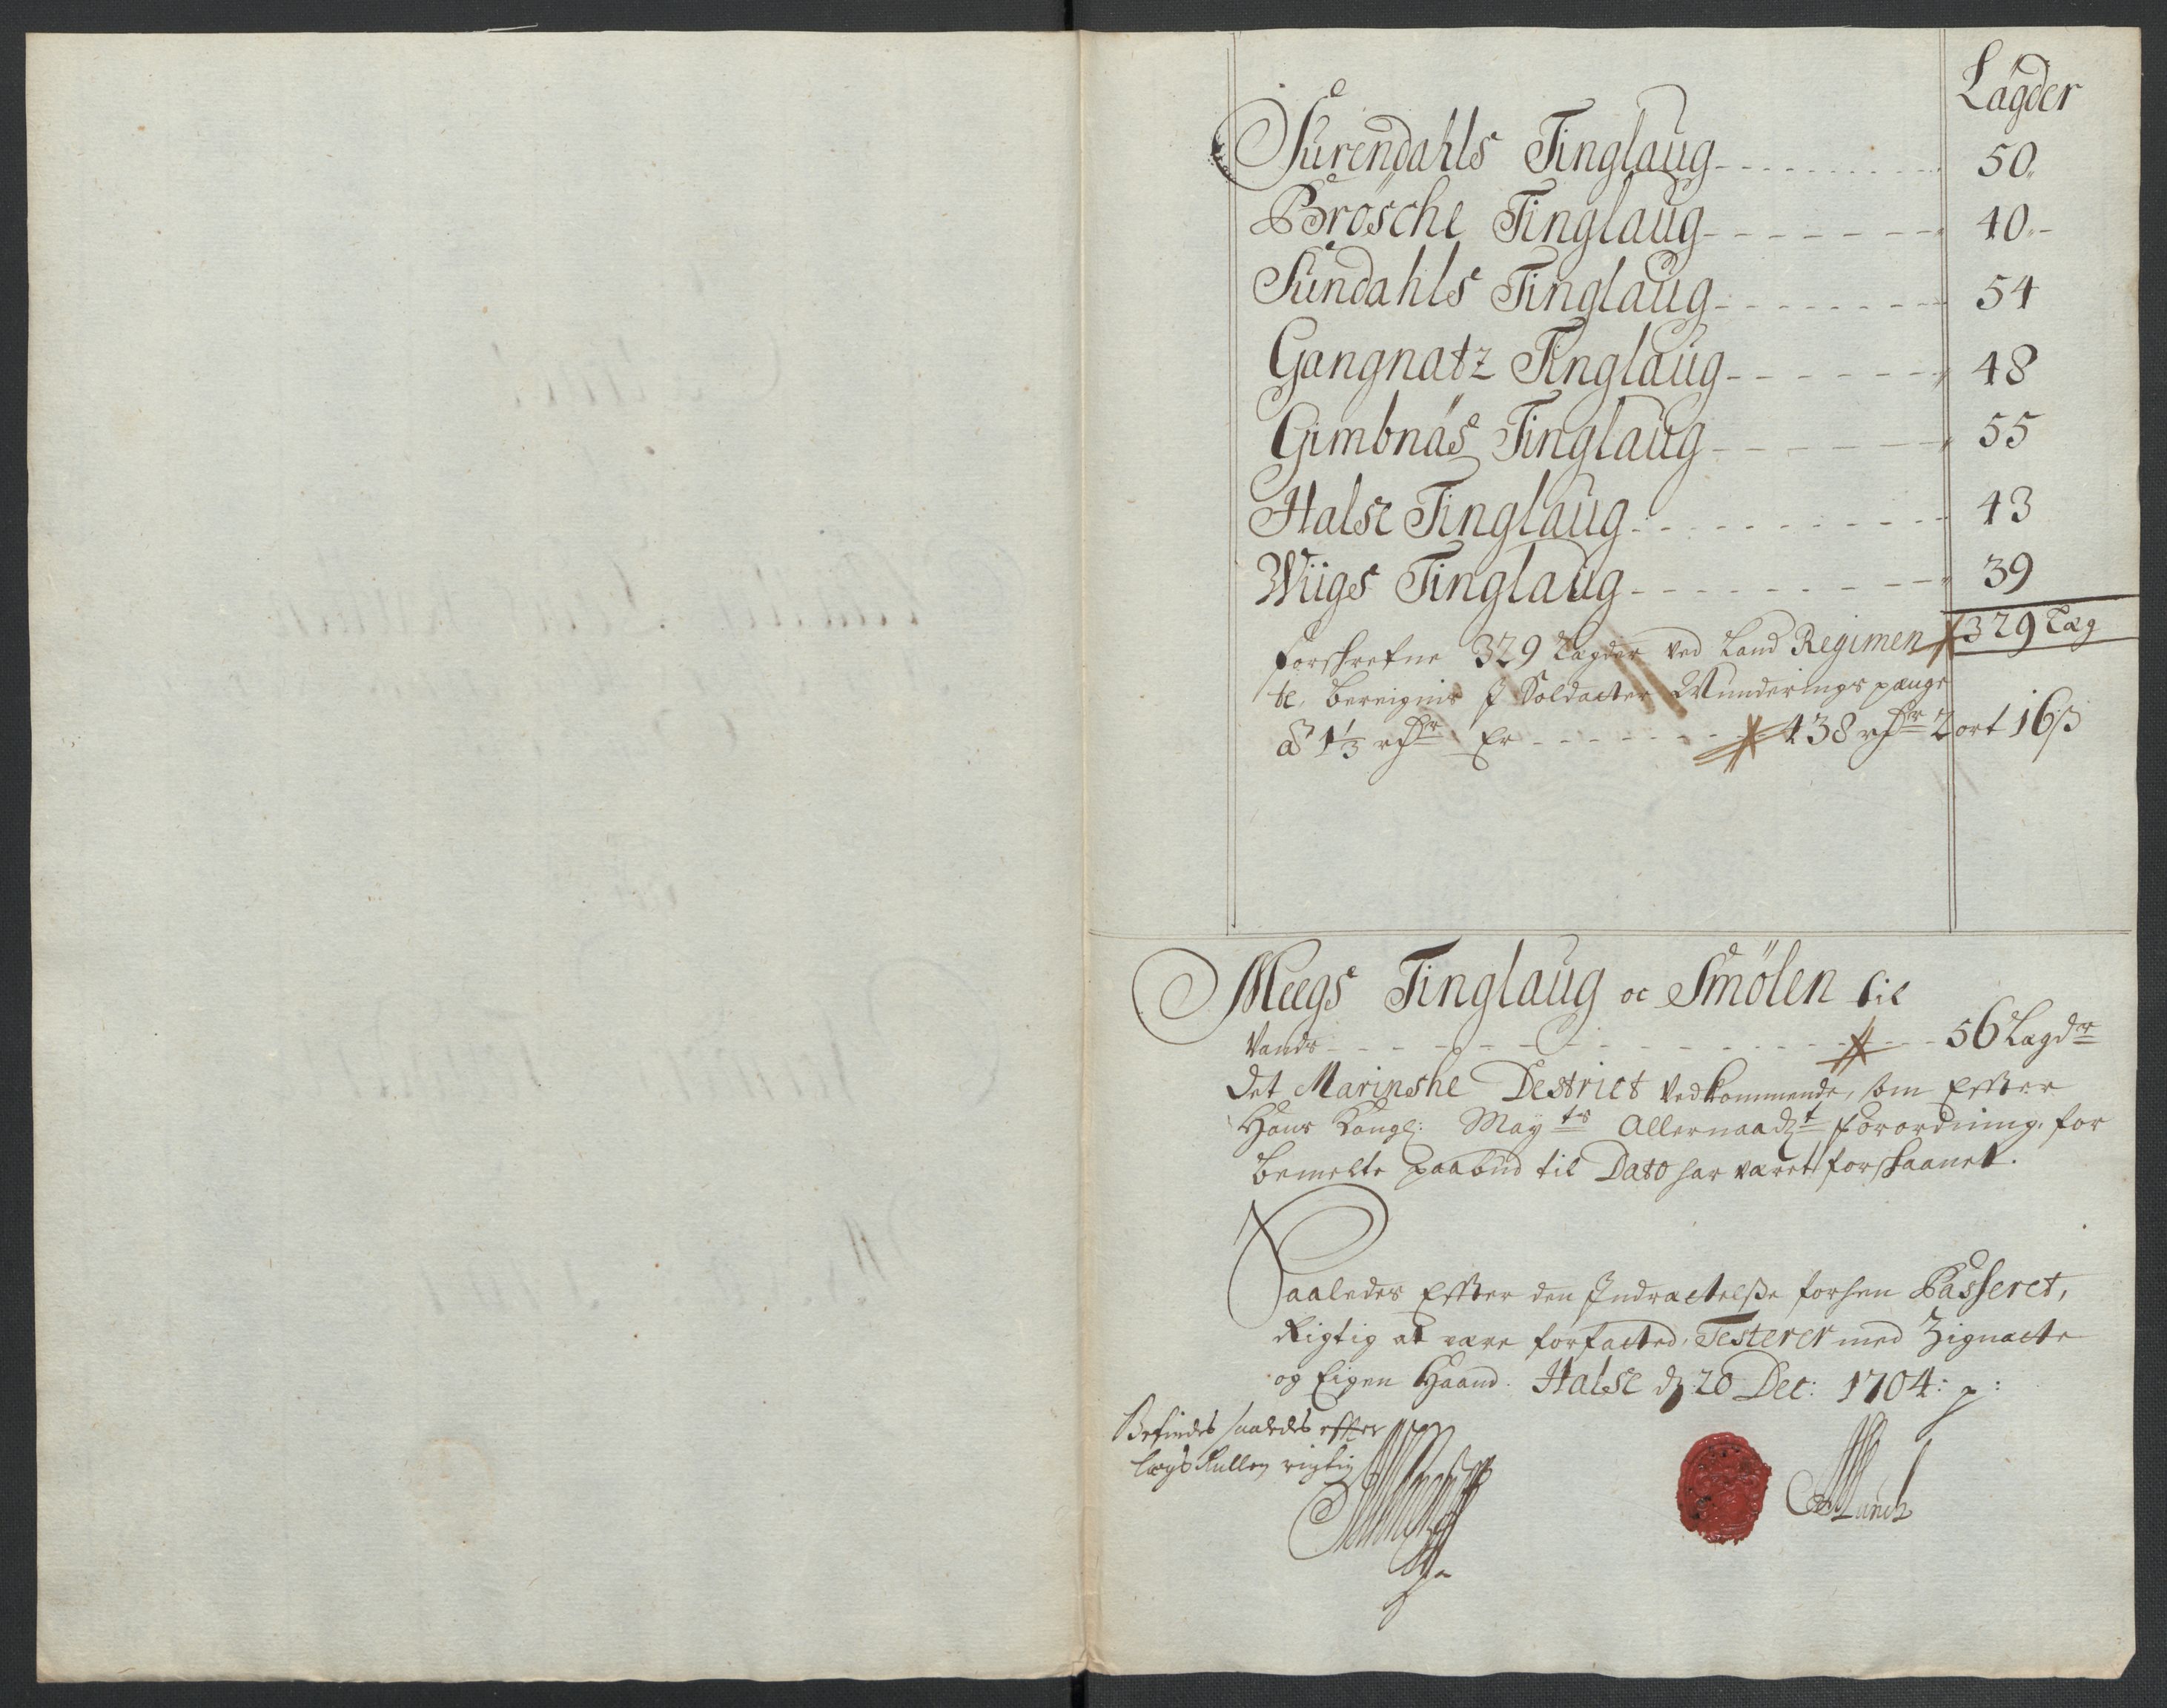 Lägder
Surendahls Tinglaug - - - - 50.
Brösche Tinglaug - - - - 40.-
Sundahls Tinglaug - - - - 54
Gangnatz Tinglaug - - - - 48
Gimbnäs Tinglaug - - - - 55
Halse Tinglaug - - - - 43
Wiigs Tinglaug - - - - 39
forskrefne 329 Lægder ved Land Regimen 329 Læg
te, bereignis J Soldater Munderings penge
a 1⅓ rdr Er - - - - 438 rdr 2 ort 16 ß
Meegs Tinglaug oc Smölen til
Vands - - - - 56 Lægdr
det Marinshe Destrict Vedkommende, som Effter
Hans Kongl: Mayts Allernaadgt forordning, for
bemelte paabud til Dato har været forskaanet.
Saaledes Effter den Indrættelße forhen Passeret,
Rigtig at være forfatted, Testerer med Zignete
og Eigen Haand. Halse d: 20 Dec: 1704: p:
Befindes saaledes effter
lægs Rullen rigtig
Munch